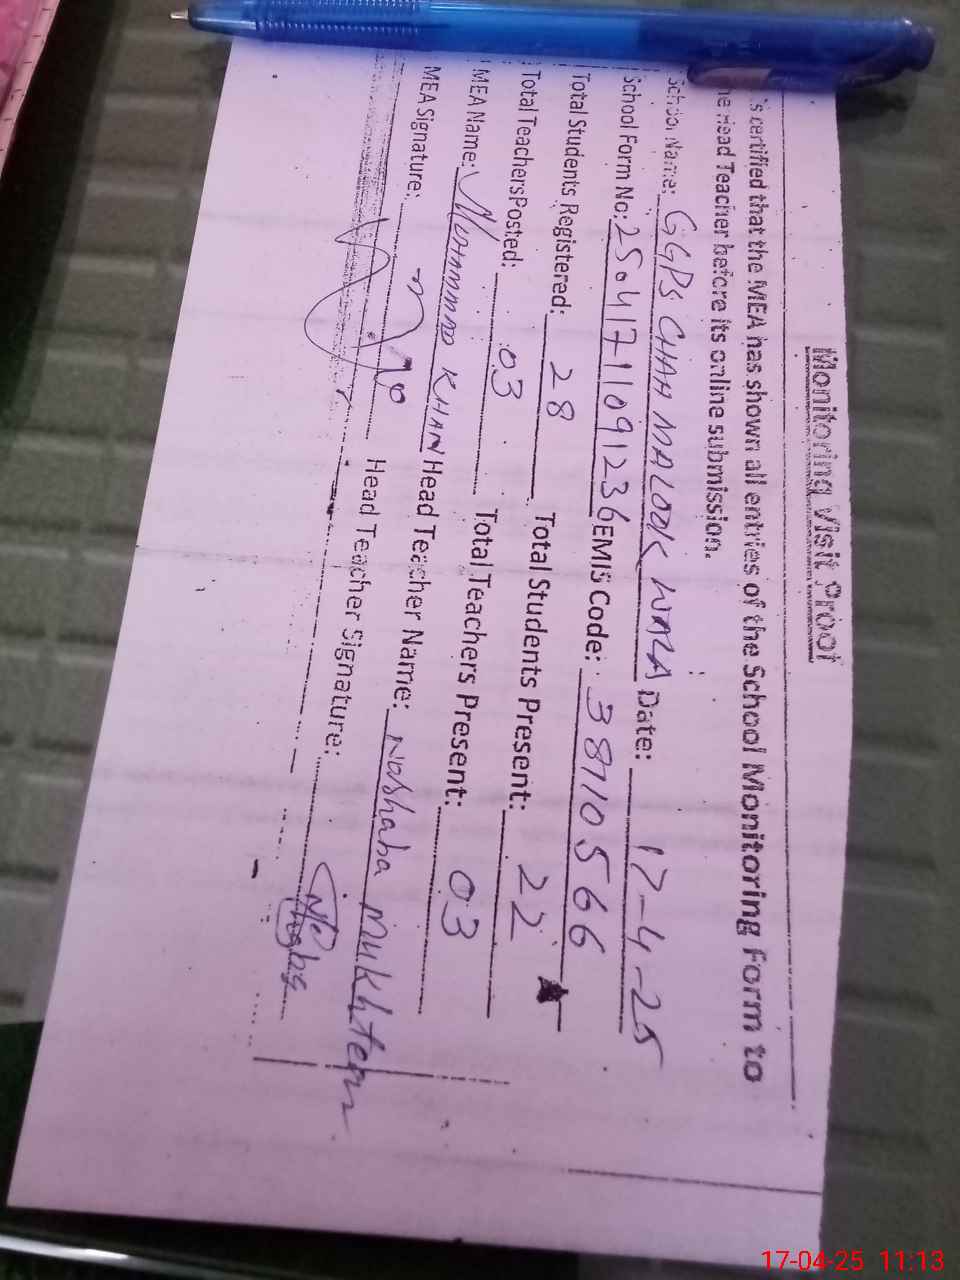 Monitoring Visit Proof
's certified that the MEA has shown all entries of the School Monitoring Form to
he Head Teacher before its online submission.
School Name: GGPS CHAH MALOOK WALA Date: 17-4-25
School Form No: 25041711091236 EMIS Code: 38710566
Total Students Registered: 28 Total Students Present: 22
Total Teachers Posted: 03 Total Teachers Present: 03
MEA Name: MOHAMMAD KHAN Head Teacher Name: Noshaba Mukhtear
MEA Signature: Head Teacher Signature:
17-04-25 11:13